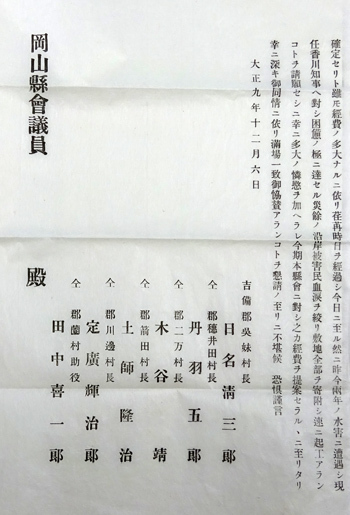 確定セリト雖モ經費ノ多大ナルニ依リ荏苒時日ヲ經過シ今日ニ至ル然ニ昨今兩年ノ水害ニ遭遇シ現
任香川知事ヘ對シ困憊ノ極ニ達セル災餘ノ沿岸被害民血淚ヲ絞リ敷地全部ヲ寄附シ速ニ起工アラン
コトヲ請願セシニ幸ニ多大ノ憐愍ヲ加ヘラレ今期本縣會ニ對シ之カ經費ヲ提案セラルヽニ至リタリ
幸ニ深キ御同情ニ依リ滿場一致御協賛アランコトヲ懇請ノ至リニ不堪候　恐惧謹言
大正九年十二月六日
吉備郡吳妹村長
日名淸三郞
仝　郡穗井田村長
丹羽五郞
仝　郡二万村長
木谷靖
仝　郡箭田村長
土師隆治
仝　郡川邊村長
定廣輝治郞
仝　郡薗村助役
田中喜一郞
岡山縣會議員　殿